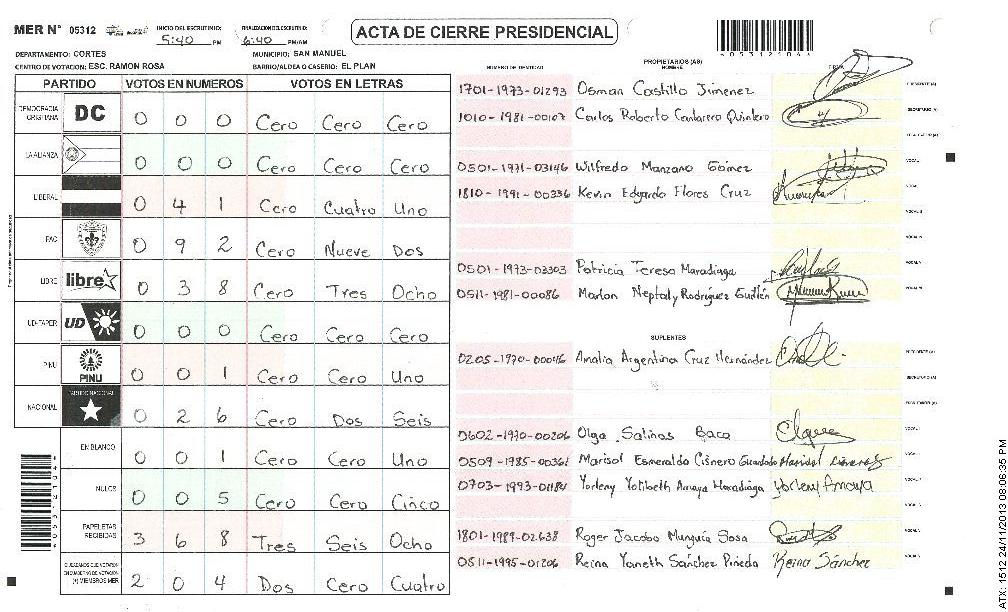 MER N° 05312 INICIO DEL ESCRUTINIO: 5:40 PM FINALIZACION DEL ESCRUTINIO: 6:40 PM/AM
ACTA DE CIERRE PRESIDENCIAL
DEPARTAMENTO: CORTES MUNICIPIO: SAN MANUEL
CENTRO DE VOTACION: ESC. RAMON ROSA BARRIO/ALDEA O CASERIO: EL PLAN
PARTIDO VOTOS EN NUMEROS VOTOS EN LETRAS
DEMOCRACIA CRISTIANA DC 0 0 0 Cero Cero Cero
LA ALIANZA 0 0 0 Cero Cero Cero
LIBERAL 0 4 1 Cero Cuatro Uno
PAC 0 9 2 Cero Nueve Dos
LIBRE libre 0 3 8 Cero Tres Ocho
UD-FAPER UD 0 0 0 Cero Cero Cero
PINU PINU 0 0 1 Cero Cero Uno
NACIONAL PARTIDO NACIONAL 0 2 6 Cero Dos Seis
EN BLANCO 0 0 1 Cero Cero Uno
NULOS 0 0 5 Cero Cero Cinco
PAPELETAS RECIBIDAS 3 6 8 Tres Seis Ocho
CIUDADANOS QUE VOTARON EN CUADERNO DE VOTACION (+) MIEMBROS MER 2 0 4 Dos Cero Cuatro
NUMERO DE IDENTIDAD PROPIETARIOS (AS) NOMBRE
1701-1973-01293 Osman Castillo Jimenez
1010-1981-00107 Carlos Roberto Cantarero Quintero
0501-1971-03146 Wilfredo Manzano Gómez
1810-1991-00336 Kevin Edgardo Flores Cruz
0501-1973-03303 Patricia Teresa Maradiaga
0511-1981-00086 Marlon Neptaly Rodríguez Guillén
SUPLENTES
0205-1970-00046 Amalia Argentina Cruz Hernández
0602-1970-00206 Olga Salinas Baca
0509-1985-00361 Marisol Esmeralda Cisnero Guardado
0703-1993-01184 Yorleny Yolibeth Amaya Maradiaga Yorleny Amaya
1801-1989-02638 Roger Jacobo Munguía Sosa
0511-1995-01206 Reina Yaneth Sánchez Pineda Reina Sánchez
ATX: 1512 24/11/2013 08:06:35 PM